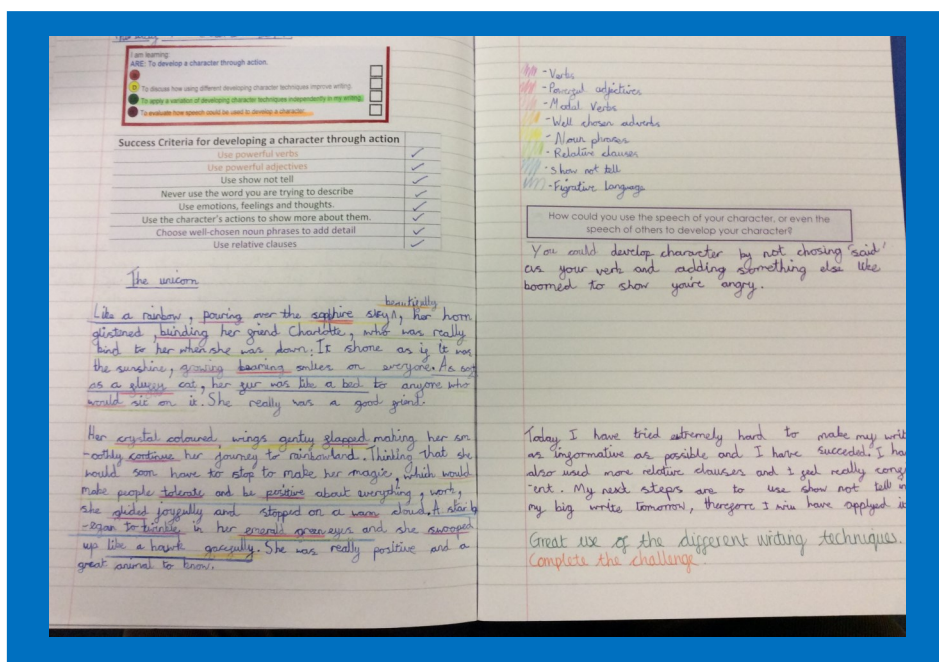 I am learning:
ARE: To develop a character through action.
To discuss how using different developing character techniques improve writing.
To apply a variation of developing character techniques independently in my writing.
To evaluate how speech could be used to develop a character.
Success Criteria for developing a character through action
Use powerful verbs
Use powerful adjectives
Use show not tell
Never use the word you are trying to describe
Use emotions, feelings and thoughts.
Use the character's actions to show more about them.
Choose well-chosen noun phrases to add detail
Use relative clauses
The unicorn
beautifully
Like a rainbow, pouring over the sapphire sky^, her horn
glistened, blinding her friend Charlotte, who was really
kind to her when she was down. It shone as if it was
the sunshine, growing beaming smiles on everyone. As sof
as a fluffy cat, her fur was like a bed to anyone who
would sit on it. She really was a good friend.
Her crystal coloured, wings gently flapped making her sm
-oothly continue her journey to rainbowland. Thinking that she
would soon have to stop to make her magic, which would
make people tolerate and be positive about everything, work,
she glided joyfully and stopped on a warm cloud. A star b
-egan to twinkle in her emerald green eyes and she swooped
up like a hawk gracefully. She was really positive and a
great animal to know.
- Verbs
- Powerful adjectives
- Modal Verbs
- Well chosen adverbs
- Noun phrases
- Relative clauses
- Show not tell
- Figrative language
How could you use the speech of your character, or even the
speech of others to develop your character?
You could develop character by not chosing 'said'
as your verb and adding something else like
boomed to show you're angry.
Today I have tried extremely hard to make my writ
as informative as possible and I have succeded. I ha
also used more relative clauses and I feel really cong
-ent. My next steps are to use show not tell in
my big write tomorrow, therefore I will have applyed it
Great use of the different writing techniques.
Complete the challenge.